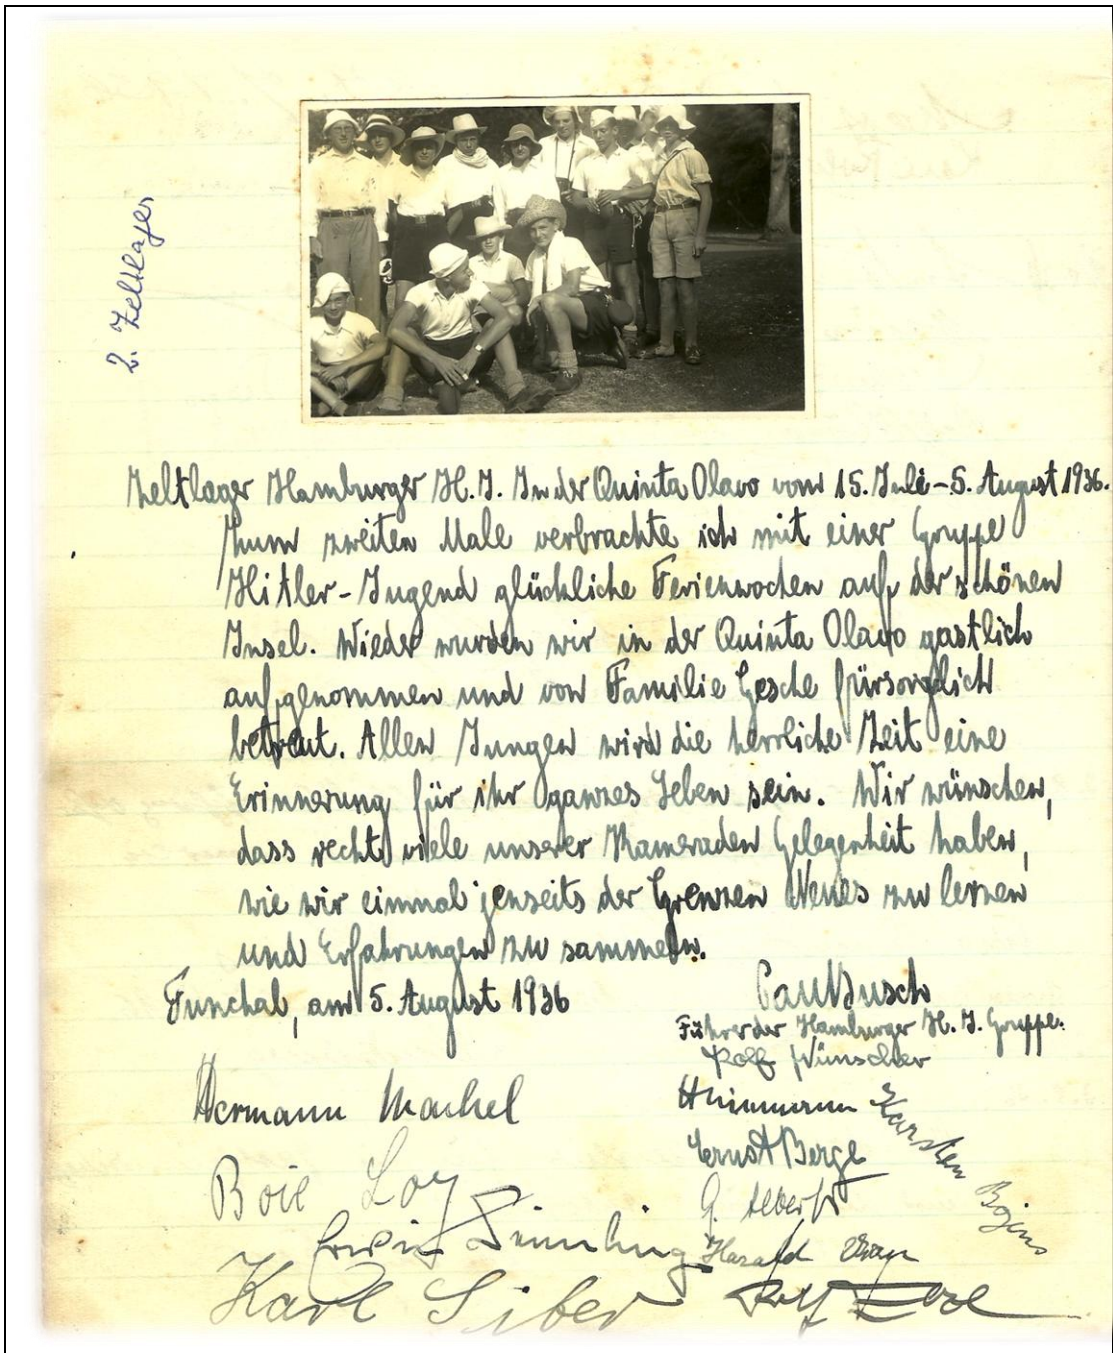 2. Zeltlager
Zeltlager Hamburger H.J. In der Quinta Olavo vom 15. Juli - 5. August 1936.
Zum zweiten Male verbrachte ich mit einer Gruppe
Hitler-Jugend glückliche Ferienwochen auf der schönen
Insel. Wieder wurden wir in der Quinta Olavo gastlich
aufgenommen und von Familie Gesche fürsorglich
betreut. Allen Jungen wird die herrliche Zeit eine
Erinnerung für ihr ganzes Leben sein. Wir wünschen,
dass recht viele unserer Kameraden Gelegenheit haben,
wie wir einmal jenseits der Grenzen Neues zu lernen
und Erfahrungen zu sammeln.
Funchal, am 5. August 1936
Paul Busch
Führer der Hamburger H.J. Gruppe.
Rolf Wünscher
Hermann Machel
Karsten Bojens
Ernst Berge
Boie Loy
G. Albers
Erwin
Harald
Karl Siber
Rolf